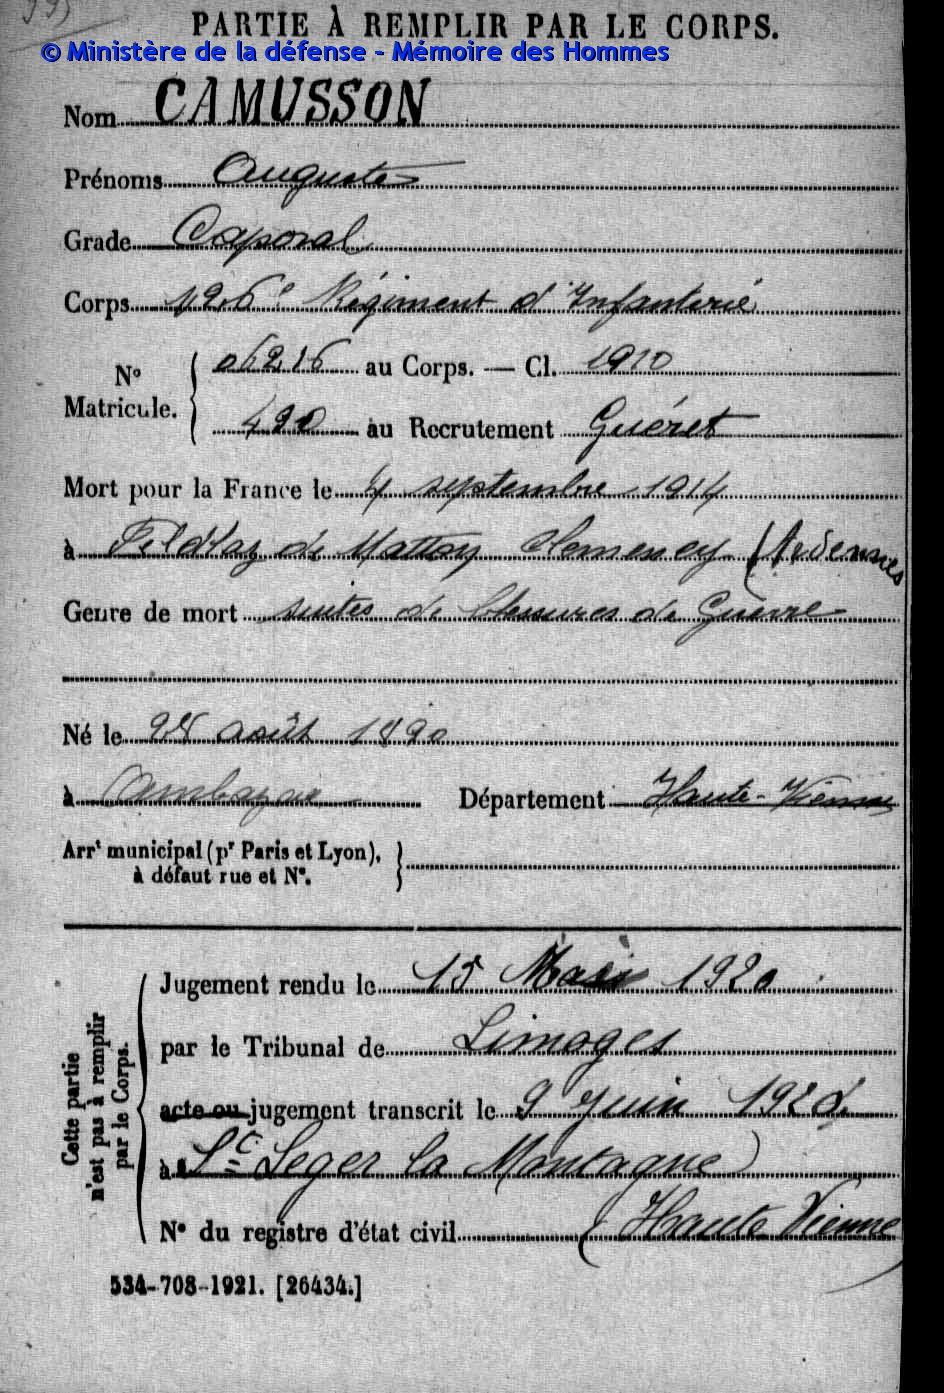 PARTIE À REMPLIR PAR LE CORPS.
© Ministère de la défense - Mémoire des Hommes
Nom CAMUSSON
Prénoms Auguste
Grade Caporal
Corps 126e Régiment d'Infanterie
No Matricule.
06216 au Corps. — Cl. 1910
490 au Recrutement Guéret
Mort pour la France le 4 septembre 1914
à Feldlaz de Matton Clemency (Ardennes
Genre de mort suites de blessures de Guerre
Né le 28 août 1890
à Ambazac Département Haute-Vienne
Arrt municipal (pr Paris et Lyon),
à défaut rue et No.
Cette partie
n'est pas à remplir
par le Corps.
Jugement rendu le 15 1920
par le Tribunal de Limoges
acte ou jugement transcrit le 9 Juin 1920.
à St Leger la Montagne
No du registre d'état civil (Haute Vienne)
534-708-1921. [26434.]